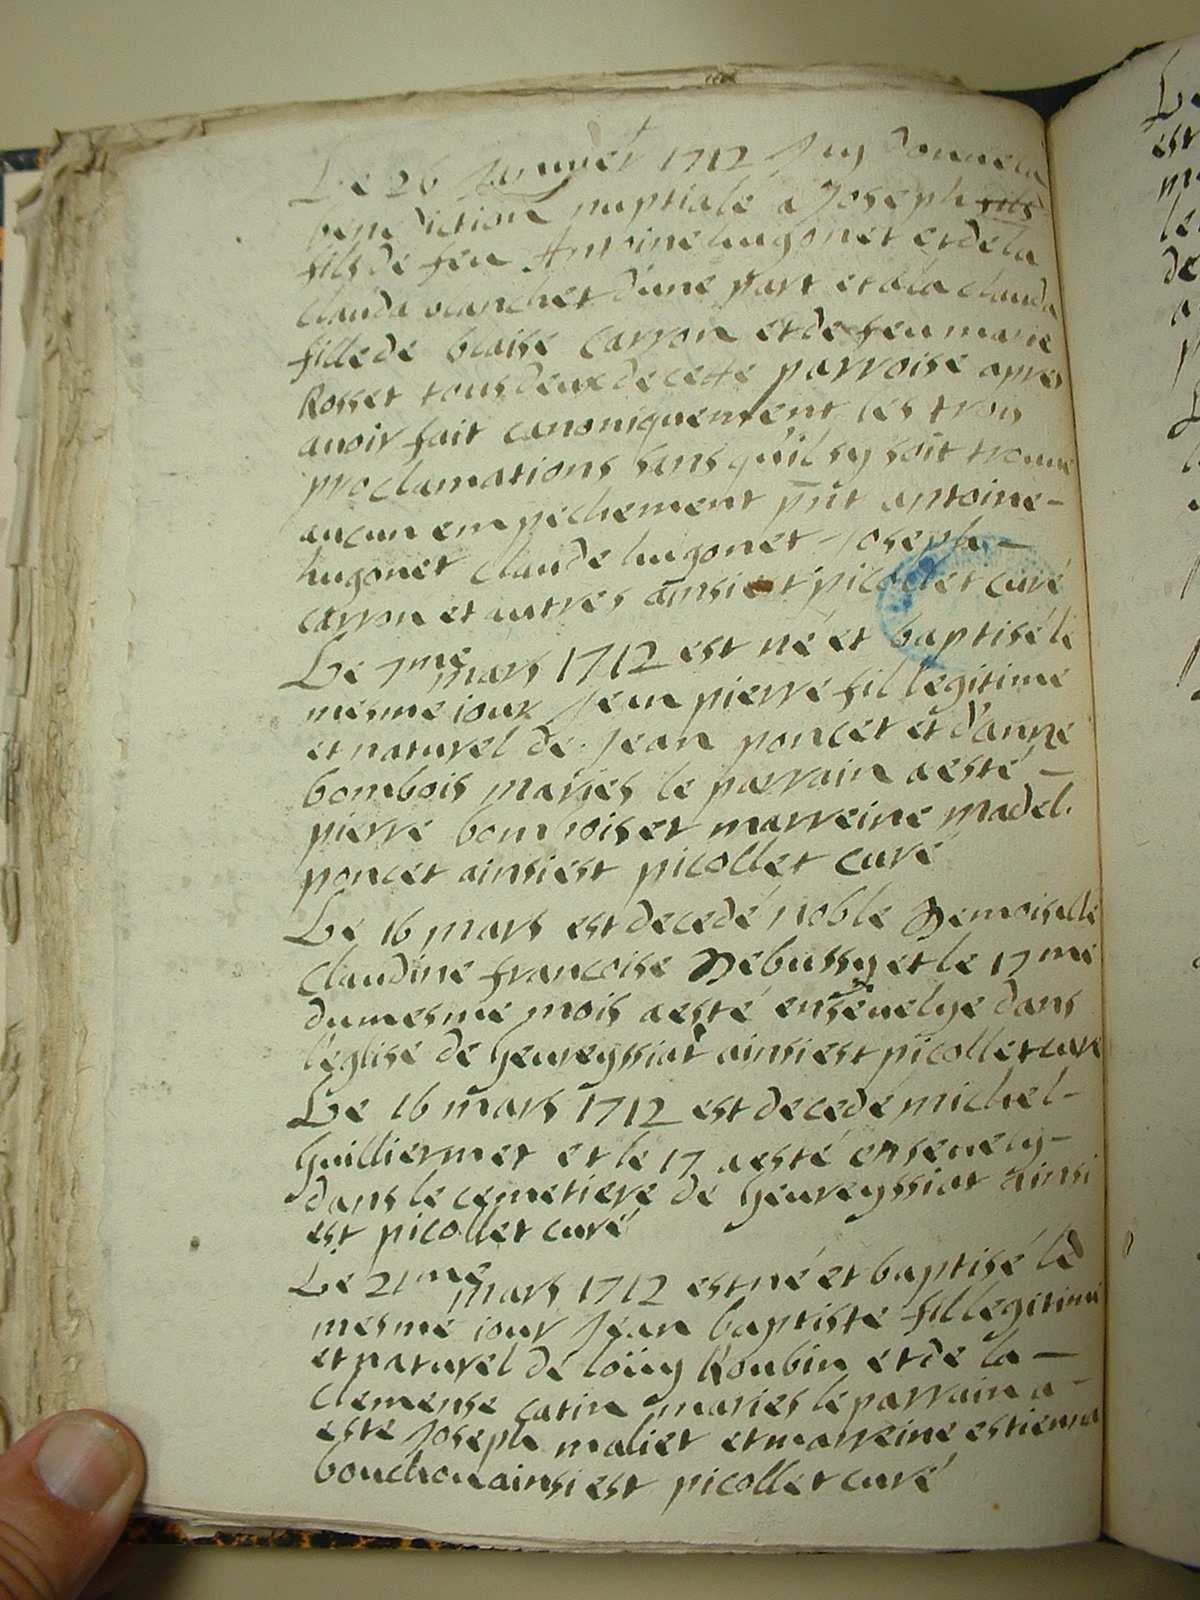 Le 26 Januier 1712 J'ay donné la
benediction nuptiale a Joseph fils
fils de feu Antoine hugonet et de la
clauda blanchet d'une part et a la clauda
fille de blaise Carron et de feu marie
Rosset tous deux de cette parroise apres
auoir fait canoniquement les trois
proclamations sans qu'il sy soit trouué
aucun empechement pñt antoine –
hugonet claude hugonet – Joseph –
carron et autres ainsi est picollet curé
Le 7me mars 1712 est né et baptisé le
mesme iour Jean pierre fil legitime
et naturel de Jean poncet et d'anne
bombois maries le parrain a esté –
pierre bombois et marreine madel.
poncet ainsi est picollet curé
Le 16 mars est decedé noble Demoiselle
Claudine francoise Debussy et le 17me
du mesme mois a esté enseuelye dans
l'eglise de Geureyssiat ainsi est picollet curé
Le 16 mars 1712 est decedé michel –
Guilliermet et le 17 a esté enseuely –
dans le cemetiere de Geureyssiat ainsi
est picollet curé
Le 21me mars 1712 est né et baptisé le
mesme iour Jean baptiste fil legitime
et naturel de loüy Roubin et de la –
Clemense catin maries le parrain a –
este Joseph maliet et marreine estienna
bouchou ainsi est picollet curé